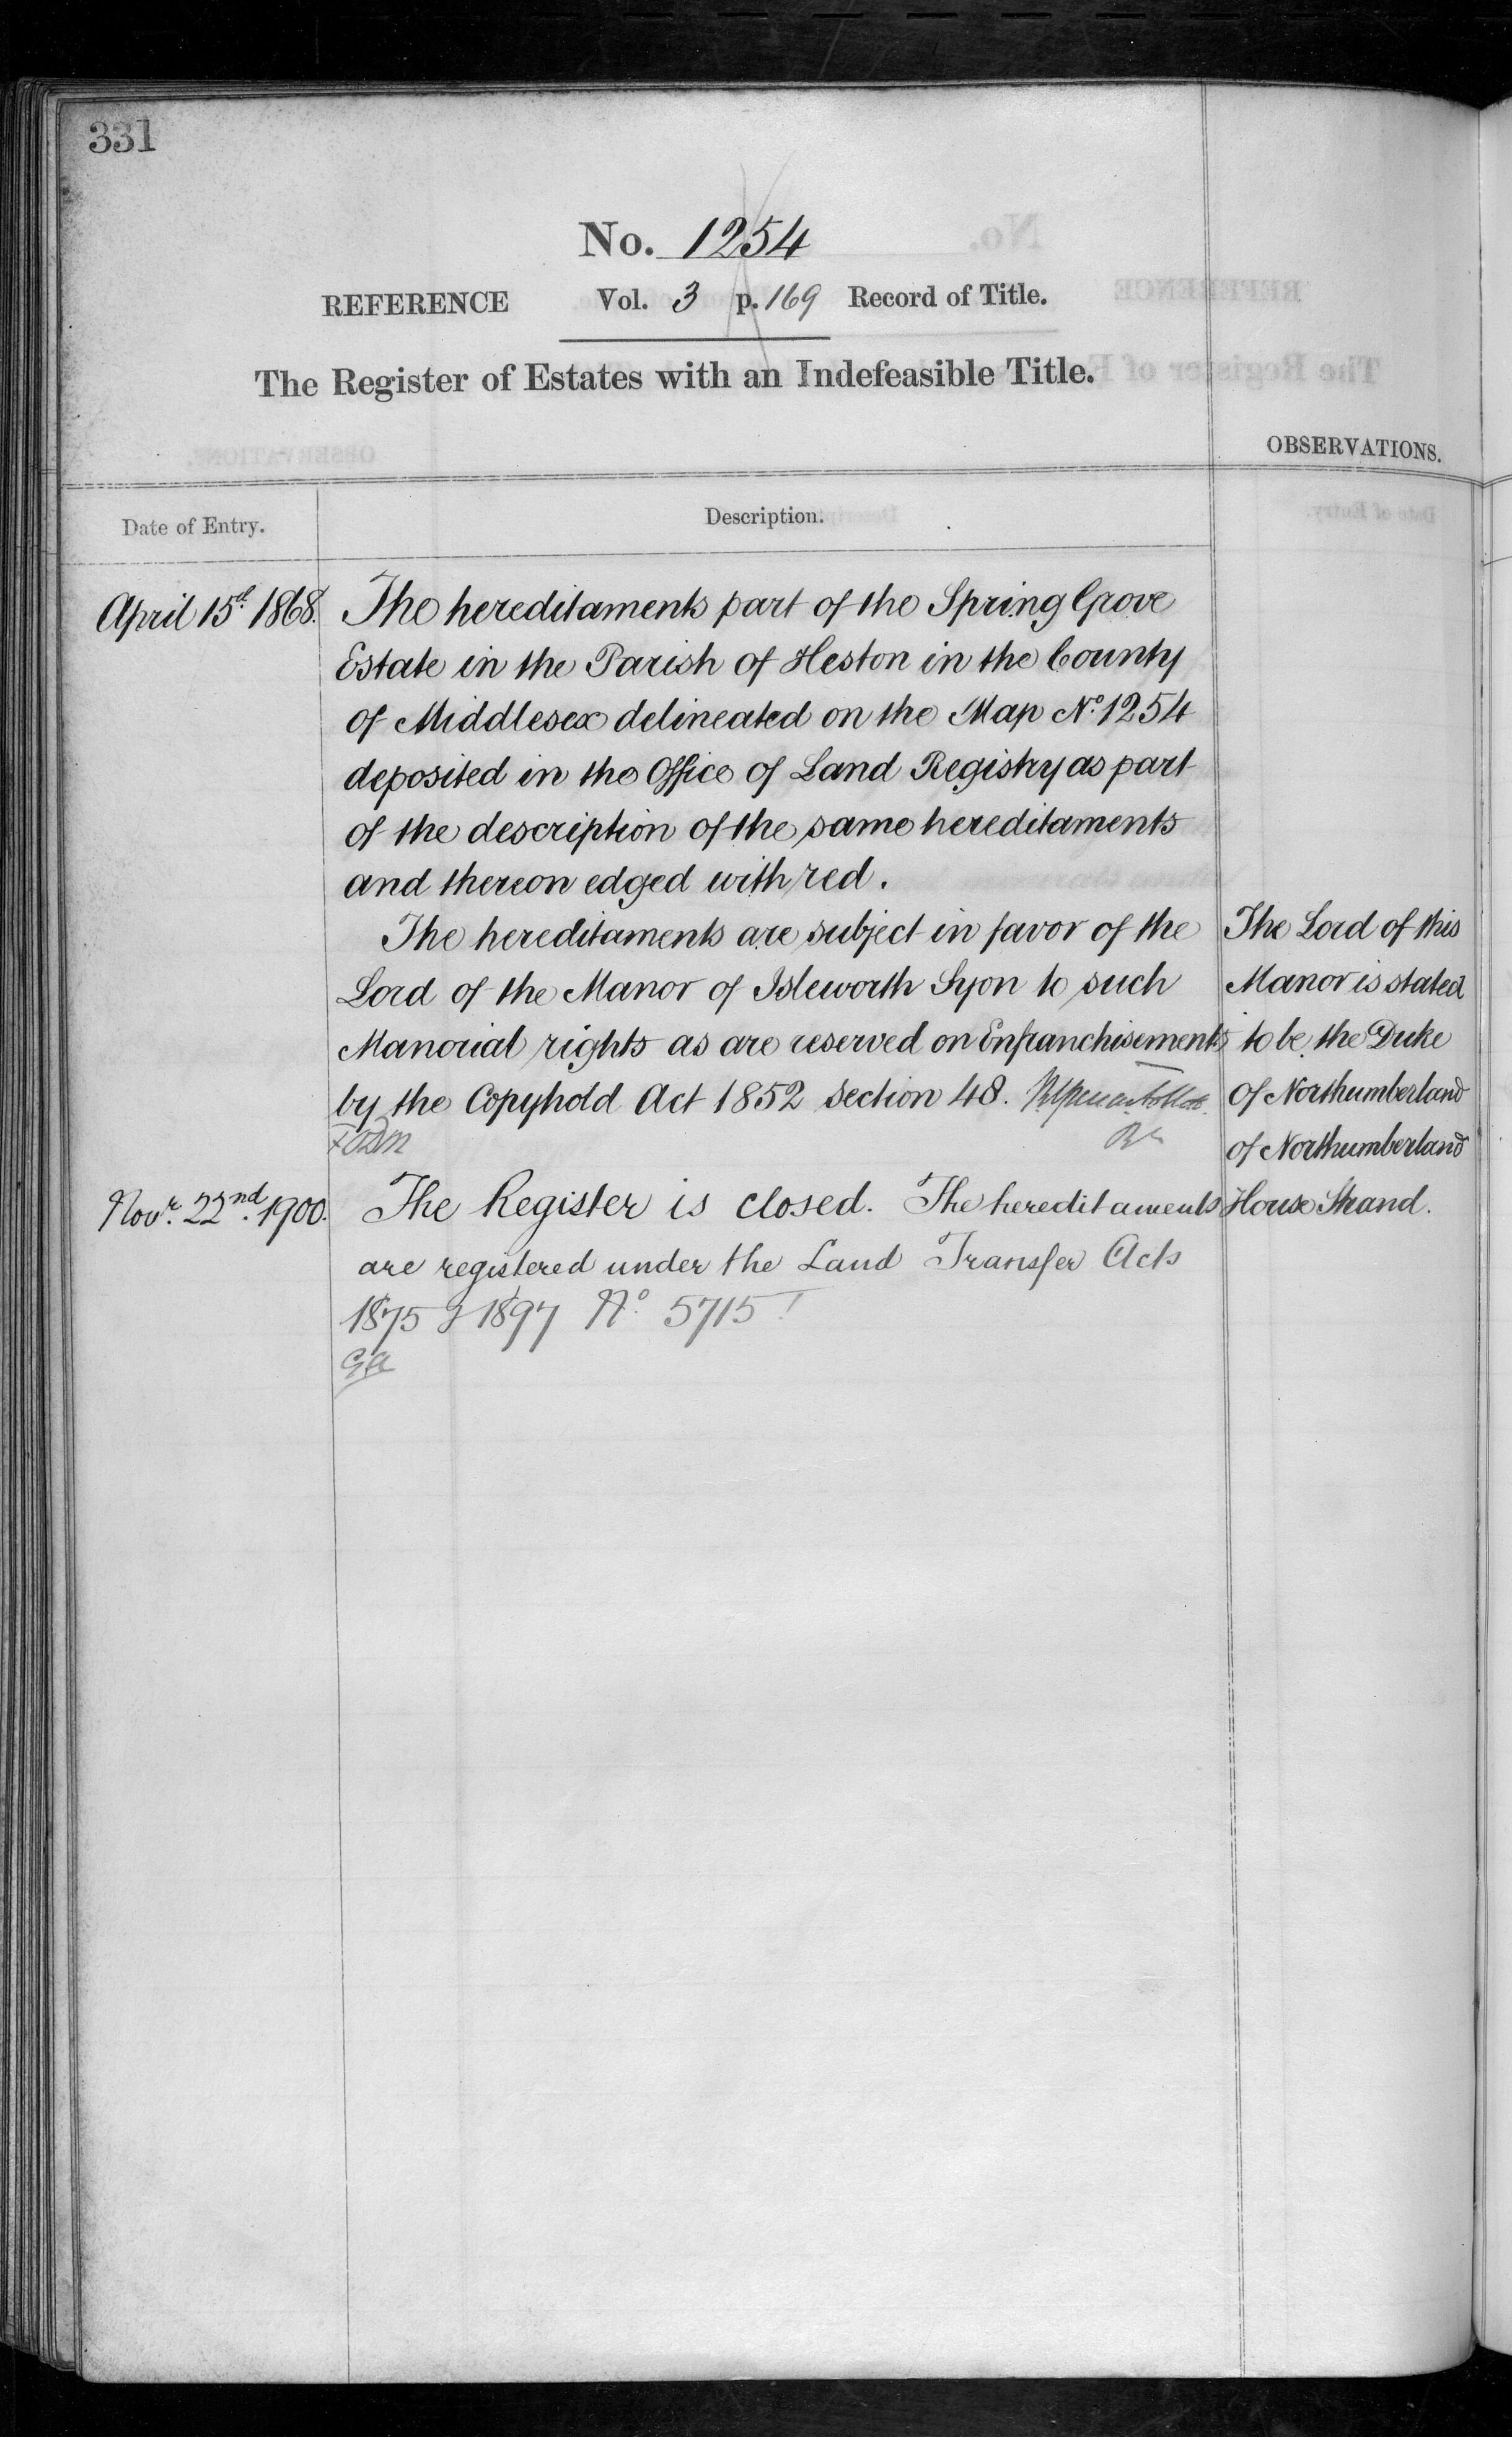 331
No. 1254
REFERENCE Vol. 3 p. 169 Record of Title.
The Register of Estates with an Indefeasible Title.
OBSERVATIONS.
Date of Entry.
Description.
April 15th 1868.
The hereditaments part of the Spring Grove
Estate in the Parish of Heston in the County
of Middlesex delineated on the Map No. 1254
deposited in the Office of Land Registry as part
of the description of the same hereditaments
and thereon edged with red.
The hereditaments are subject in favor of the
Lord of the Manor of Isleworth Syon to such
Manorial rights as are reserved on Enfranchisements
by the Copyhold Act 1852 section 48.
The Lord of this
Manor is stated
to be the Duke
of Northumberland
of Northumberland
House Strand.
Novr. 22nd. 1900.
The Register is closed. The hereditaments
are registered under the Land Transfer Acts
1875 & 1897 No 5715
GA